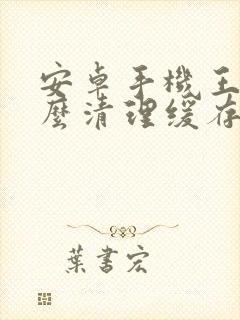 安卓手機王
麼清理缓存
葉書宏